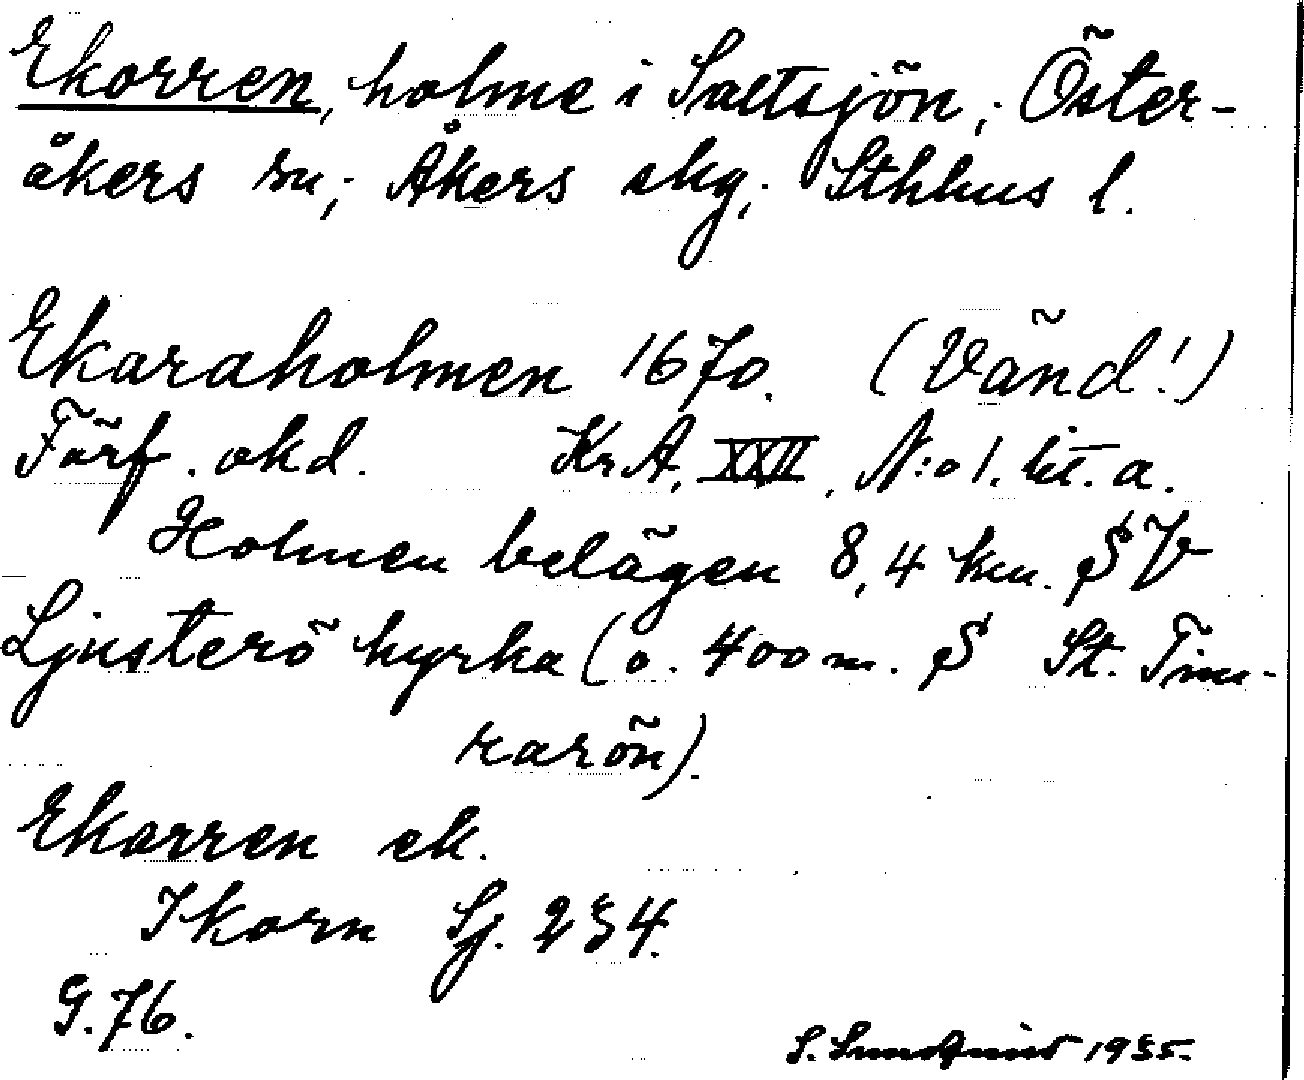 Ekorren, holme i Saltsjön; Öster-
åkers sn; Åkers skg; Sthlms l.
Ekaraholmen 1670. (Vänd!)
Förf. okd. KrA, XXII, N:o 1. lit. a.
Holmen belägen 8,4 km. SV
Ljusterö kyrka (o. 400 m. S St. Tim-
rarön).
Ekorren ek.
Ikorn Sj. 234.
G. 76.
S. Sundqvist 1935.